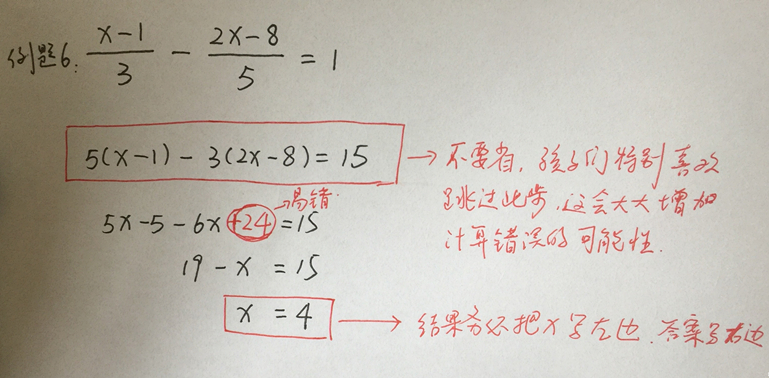 例题6: (x-1)/3 - (2x-8)/5 = 1
5(x-1) - 3(2x-8) = 15
→ 不要省,孩子们特别喜欢
跳过此步,这会大大增加
计算错误的可能性.
→易错.
5x-5-6x+24=15
19-x = 15
x = 4
→ 结果务必把x写左边,答案写右边